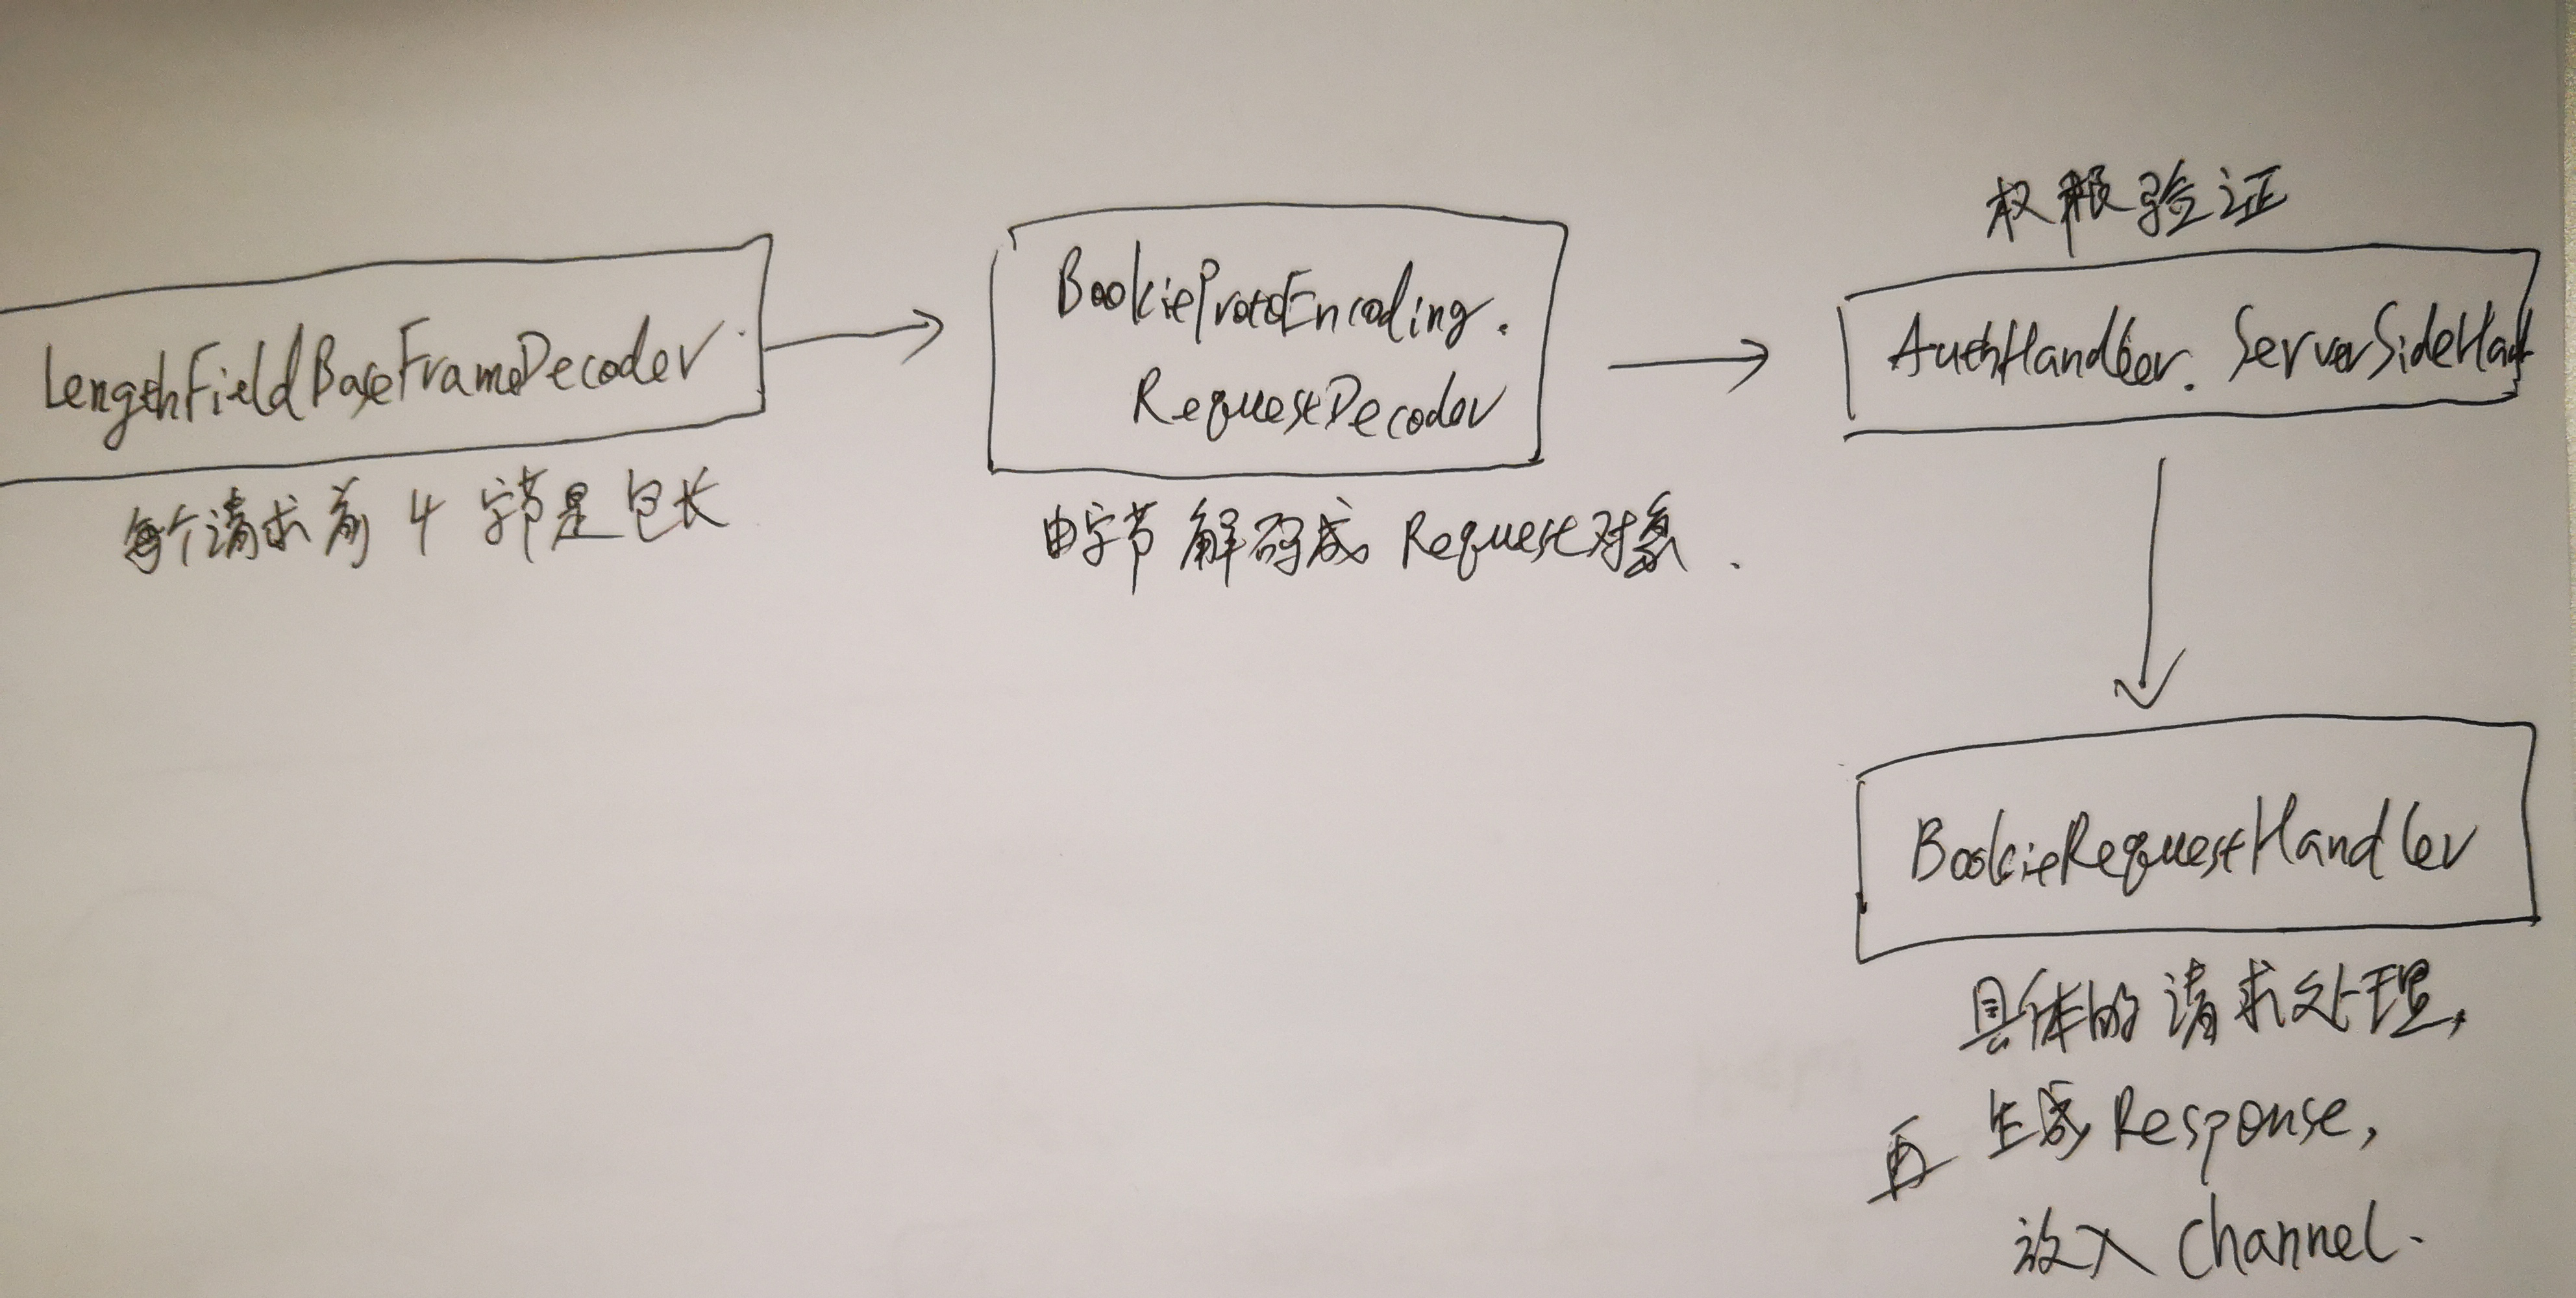 LengthFieldBaseFrameDecoder
每个请求前4字节是包长
BookieProtoEncoding.
RequestDecoder
由字节解码成Request对象.
权限验证
AuthHandler. ServerSideHand
BookieRequestHandler
具体的请求处理,
再生成Response,
放入Channel.